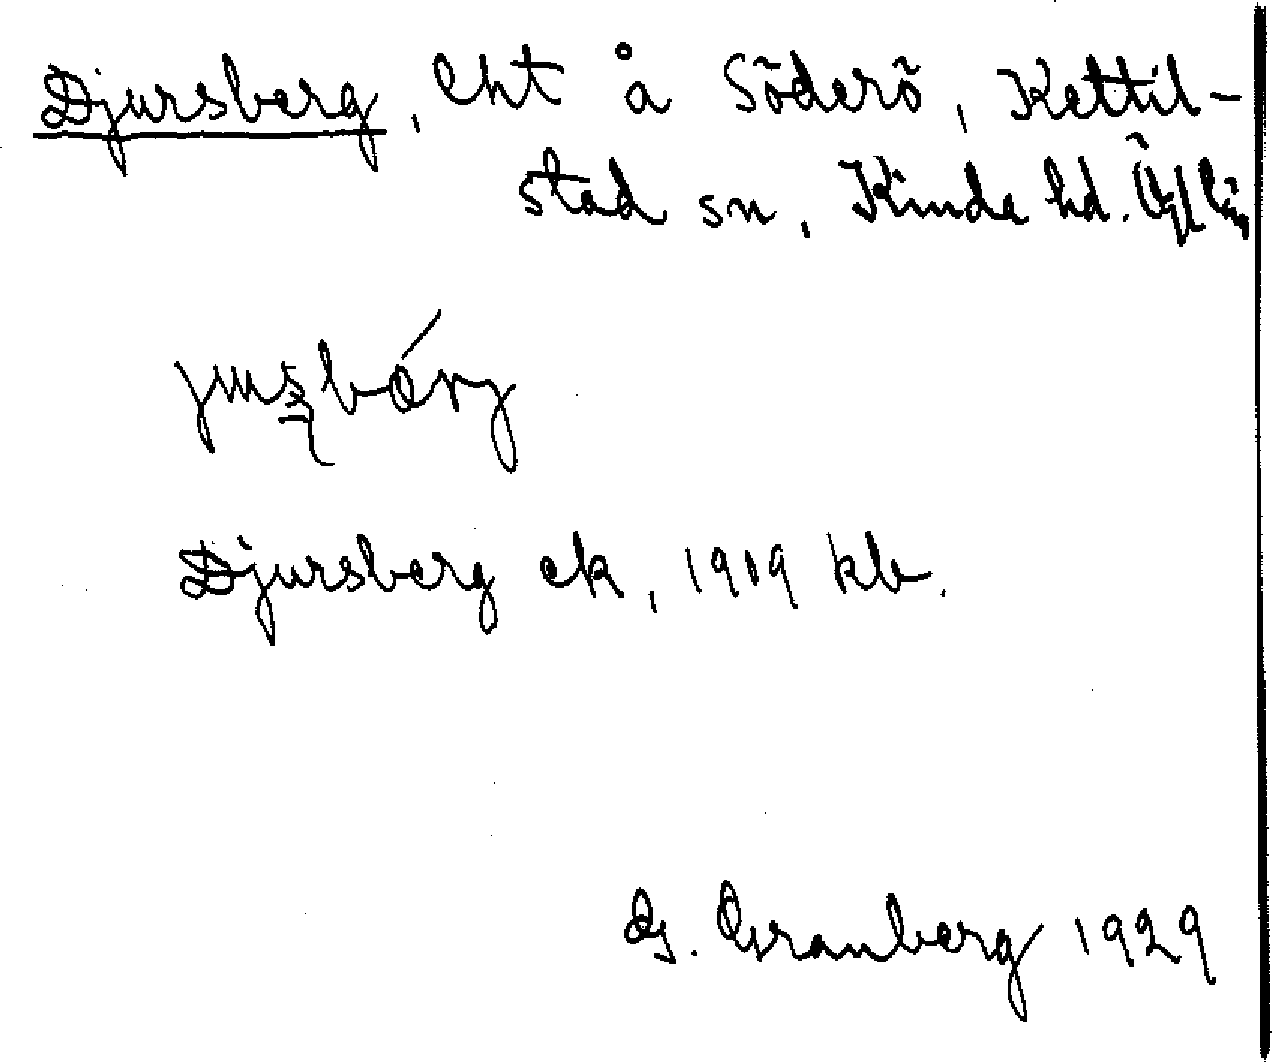 Djursberg, lht å Söderö, Kettil-
stad sn, Kinda hd. Ögl län
Djursberg ek, 1919 kb.
G. Granberg 1929